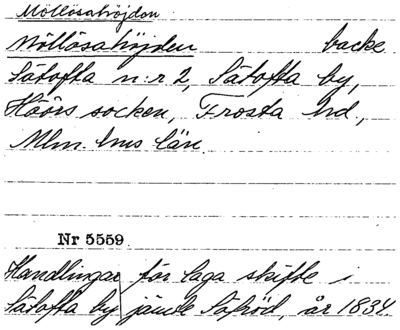 Möllösahöjden
Möllösahöjden backe
Sätofta n:r 2, Sätofta by,
Höörs socken, Frosta hd,
Mlm hus län
Nr 5559
Handlingar för laga skifte i
Sätofta by jämte Sjöröd, år 1834.